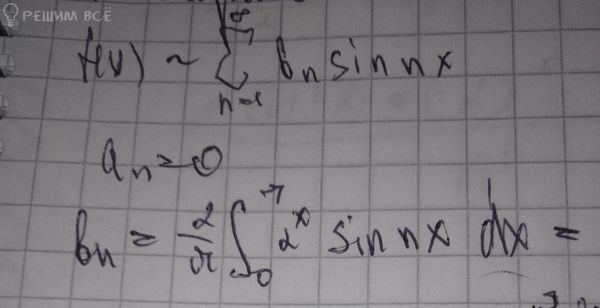 РЕШИМ ВСЁ
f(x) ~ ∑_{n=1}^{∞} b_n sin nx
a_n = 0
b_n = 2/π ∫_0^π 2^x sin nx dx =